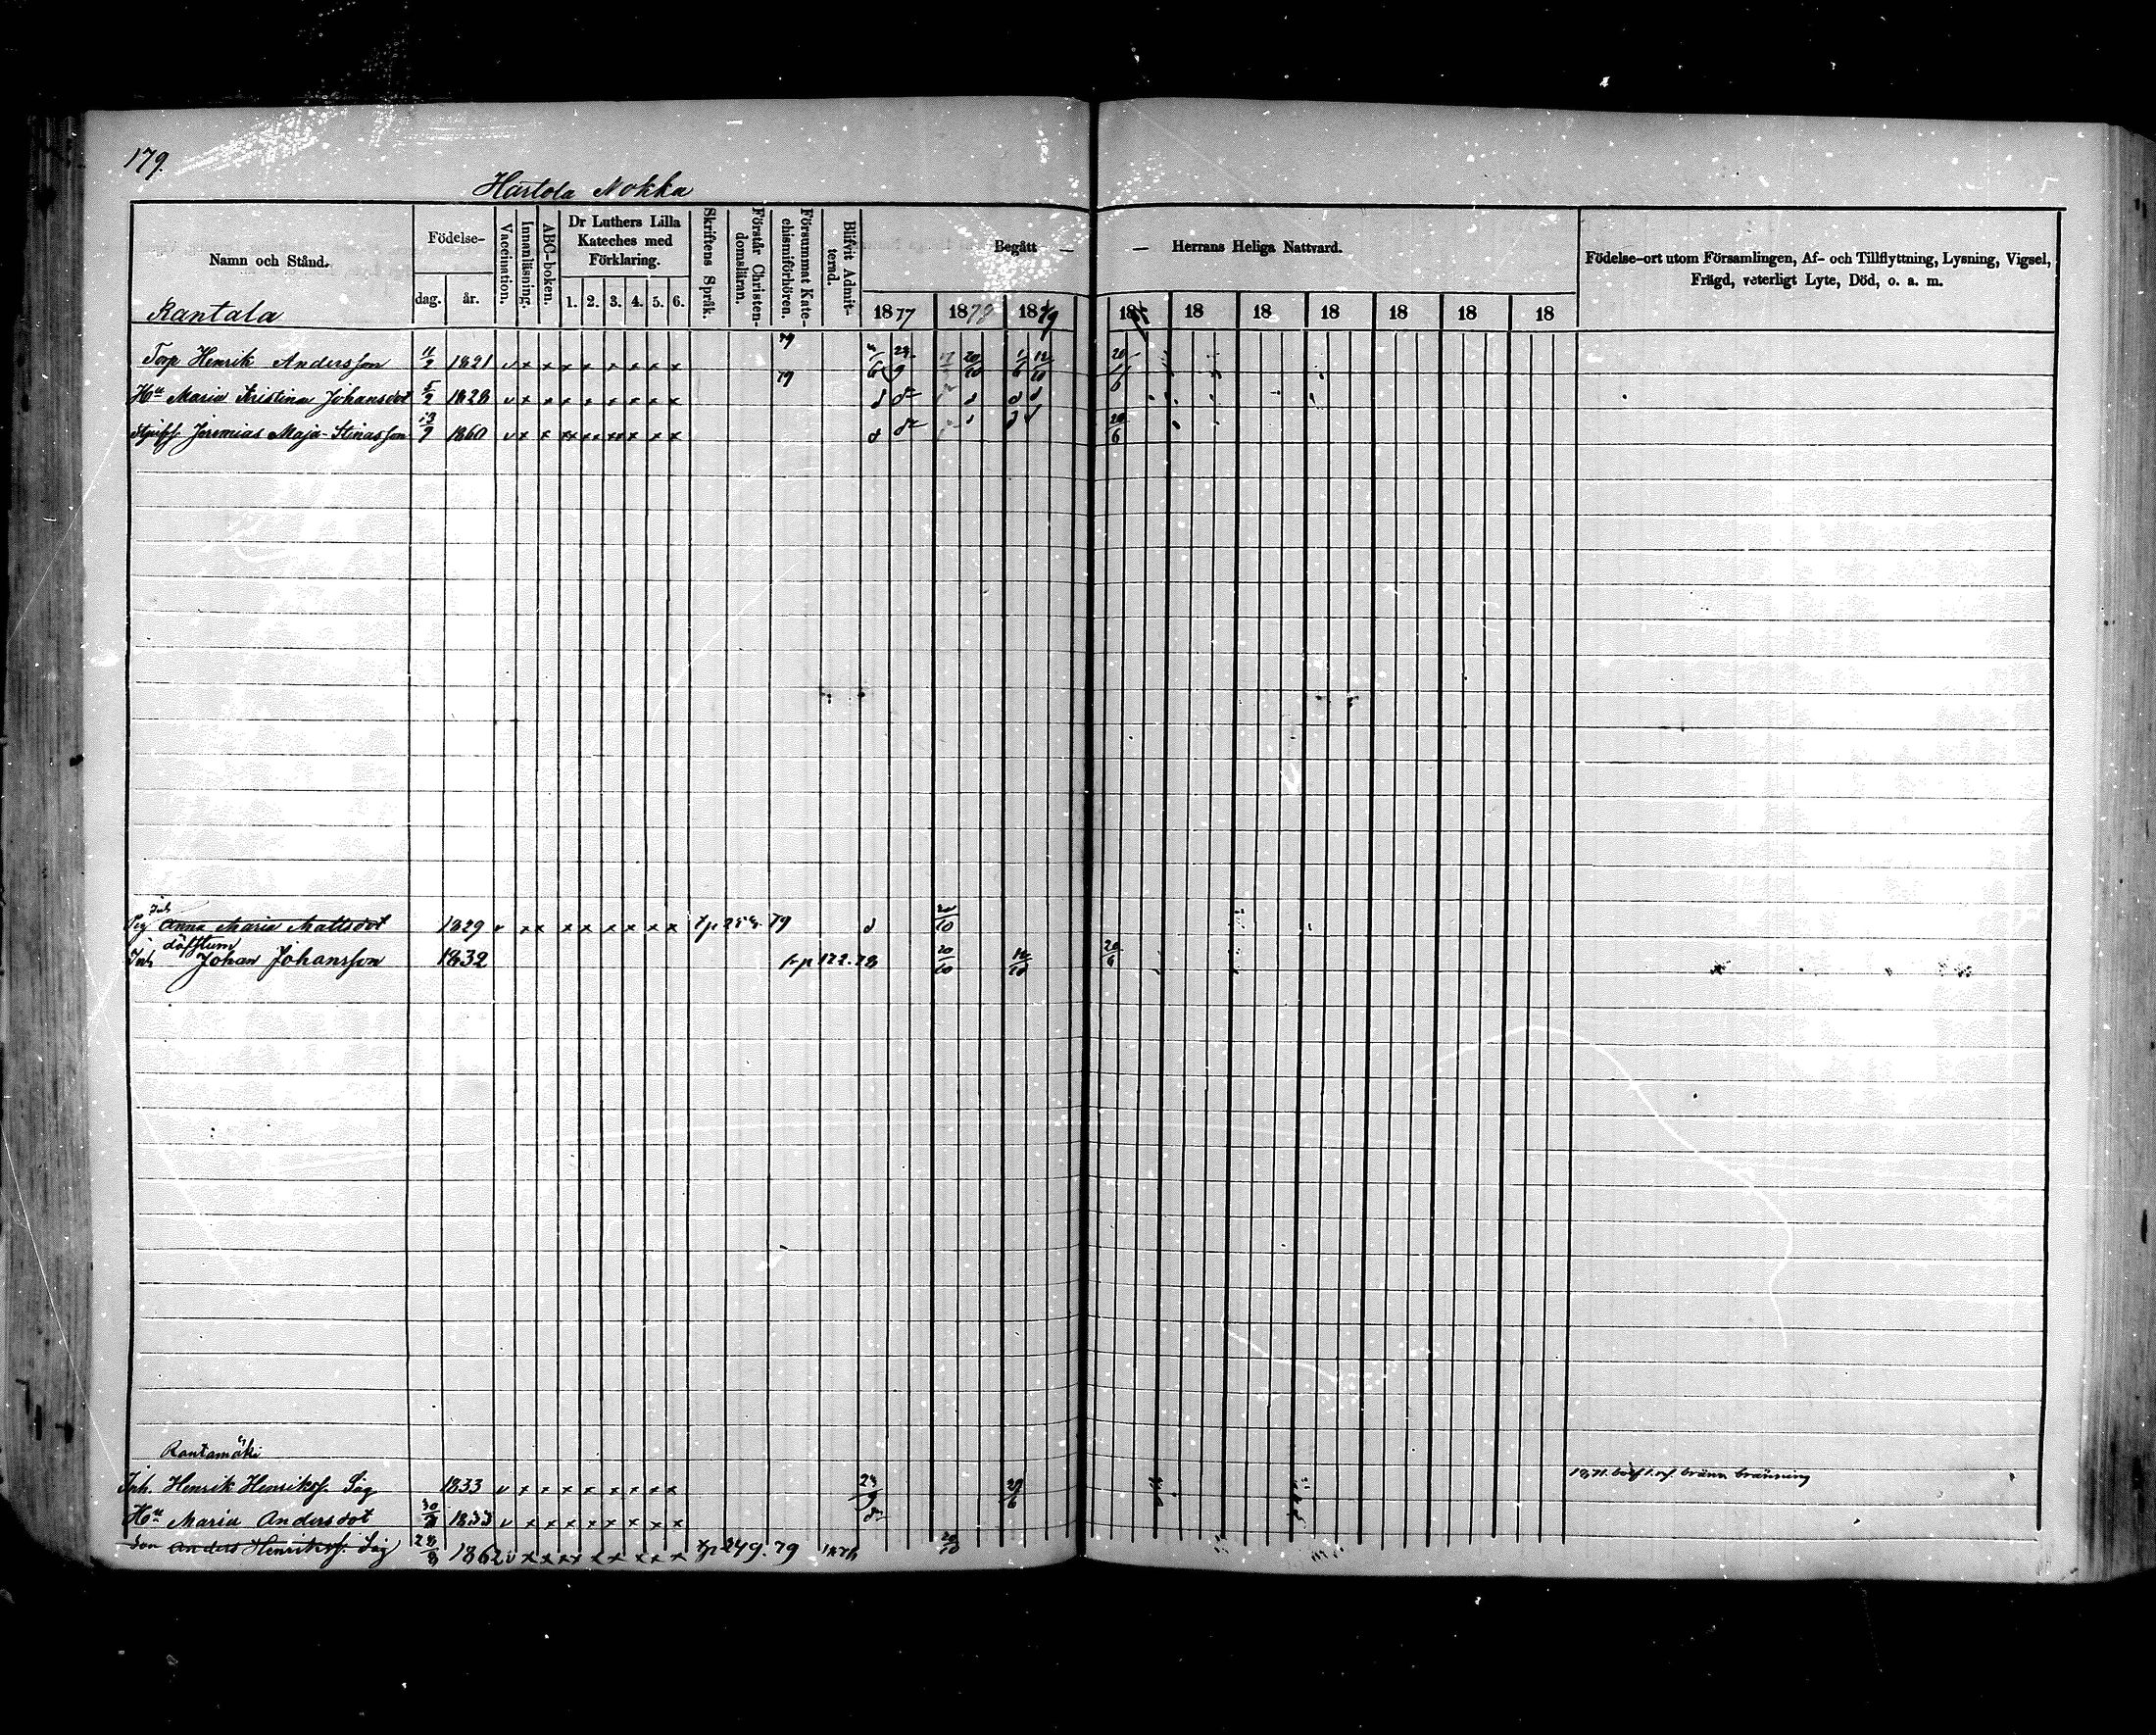 179.
Hartola Nokka
Namn och Stånd.
Födelse-
dag. år.
Vaccination.
Innanläsning.
ABC-boken.
Dr Luthers Lilla
Kateches med
Förklaring.
1. 2. 3. 4. 5. 6.
Skriftens Språk.
Förstår Christen-
domsläran.
Försummat Kate-
chismiförhören.
Blifvit Admit-
terad.
Begått —
— Herrans Heliga Nattvard.
1877 1878 1879 18 18 18 18 18 18 18
Födelse-ort utom Församlingen, Af- och Tillflyttning, Lysning, Vigsel,
Frägd, veterligt Lyte, Död, o. a. m.
Rantala
79
Torp Henrik Andersson 11/2 1821 v x x x x x x x x 29/9 20/10 1/6 12/10 20/6
79
Hu Maria Kristina Johansdot 1828 v x x x x x x x x
Jeremias Maja-Stinasson 13/9 1860 v x x xx x x xx x x x 20/6
Inh
Anna Maria Mattsdot 1829 v x x x x x x x x 79 20/10
döfstum
Inh Johan Johansson 1832 fr p 122.78 20/10 12/10 20/6
Rantamäki
Inh. Henrik Henriksf. Säg 1833 v x x x x x x x x 29/9 29/6
Hu Maria Andersdot 1833 v x x x x x x x x
Son Anders Henriksf. Säg 28/8 1862 v x x x x x x x x t p 249.79 20/10